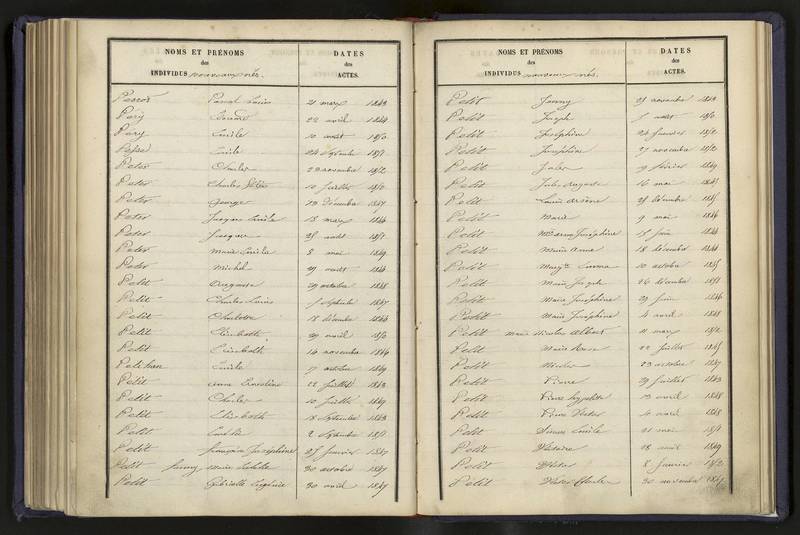 NOMS ET PRÉNOMS
des
INDIVIDUS nouveaux nés.
DATES
des
ACTES.
Perrot Pascal Louis 21 mars 1843
Pery 22 avril 1844
Pery Emile 10 août 1850
Emile 24 Septembre 1851
Peter Charles 23 novembre 1852
Peter Charles 10 Juillet 1852
Peter Georges 13 Décembre 1847
Peter Jacques Emile 18 mars 1844
Peter Jacques 25 août 1851
Peter Marie Emilie 8 mai 1849
Peter Michel 29 août 1844
Petit Auguste 29 octobre 1848
Petit Charles Louis Septembre 1847
Petit Charlotte 18 décembre 1844
Petit Elisabeth 29 avril 1850
Petit Elisabeth 14 novembre 1846
Petit Jean Emile octobre 1849
Petit Anne Ernestine 22 Juillet 1843
Petit Charles 10 Juillet 1849
Petit Elisabeth Septembre 1843
Petit 2 Septembre 1851
Petit François Joséphine 27 Janvier 1847
Petit Fanny Marie 30 octobre 1847
Petit Gabrielle 30 avril 1847
NOMS ET PRÉNOMS
des
INDIVIDUS nouveaux nés.
DATES
des
ACTES.
Petit Jenny 23 novembre 1843
Petit Joseph août 1850
Petit Joséphine 24 Janvier 1852
Petit Joséphine 27 novembre 1852
Petit Jules 9 février 1849
Petit Jules Auguste 16 mai 1845
Petit Louis Arsène 28 décembre 1845
Petit Marie 9 mai 1846
Petit Joséphine Juin 1844
Petit Marie Anne 18 décembre 1844
Petit Emma 10 octobre 1845
Petit Marie Joseph 26 décembre 1851
Petit Marie Joséphine 29 Juin 1846
Petit Marie Joséphine 4 avril 1848
Petit Marie Nicolas Albert 11 mars 1852
Petit Marie Rose 22 Juillet 1845
Petit Nicolas 23 octobre 1847
Petit Pierre 29 Juillet 1843
Petit Pierre hypolite 13 avril 1848
Petit Pierre Victor avril 1848
Petit Emile 21 mai 1851
Petit Victoire 28 août 1849
Petit Victor 8 Janvier 1852
Petit Victor Charles 30 novembre 1847